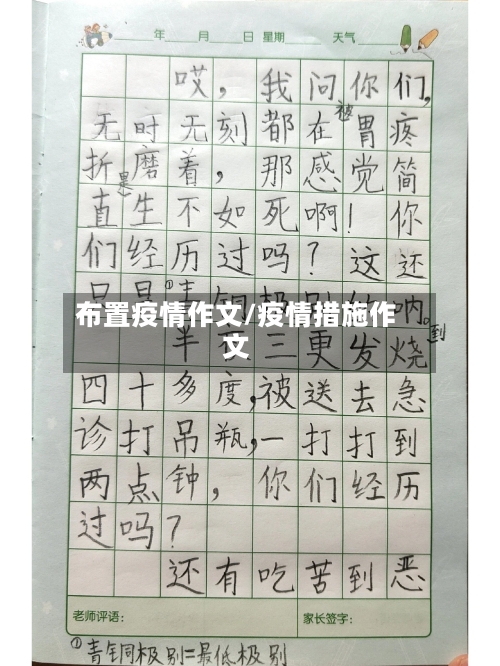 年 月 日 星期 天气
哎，我问你们，
无时无刻都在被胃疼
折磨着，那感觉简
直是生不如死啊！你
们经历过吗？这还
只是①青铜级别的呐。
布置疫情作文/疫情措施作
文
半 三更发烧到
四十多度，被送去急
诊打吊瓶，一打打到
两点钟，你们经历
过吗？
还有吃苦到恶
老师评语： 家长签字：
①青铜极别=最低极别